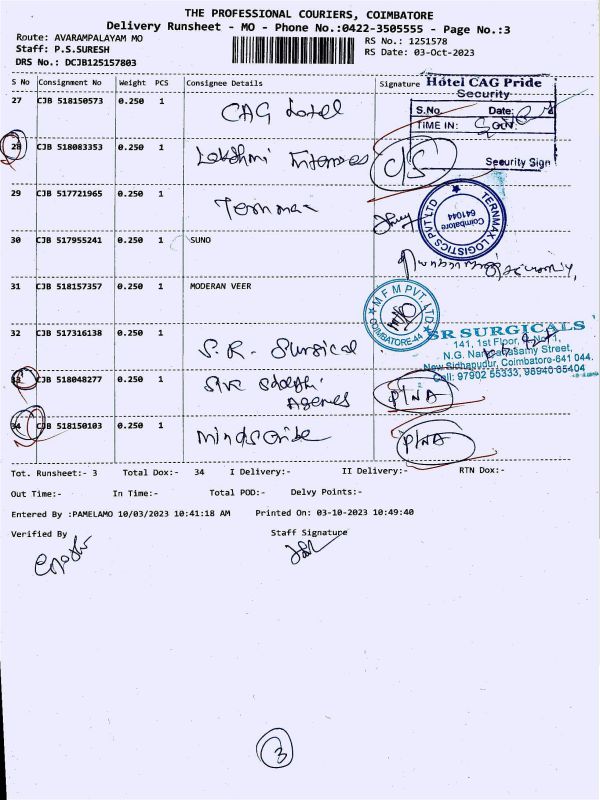 THE PROFESSIONAL COURIERS, COIMBATORE
Delivery Runsheet - MO - Phone No.:0422-3505555 - Page No.:3
Route: AVARAMPALAYAM MO
RS No.: 1251578
Staff: P.S.SURESH
RS Date: 03-Oct-2023
DRS No.: DCJB125157803
S No Consignment No Weight PCS Consignee Details Signature
Hotel CAG Pride
Security
S.No. Date:
TIME IN:
Security Sign
27 CJB 518150573 0.250 1 CAG Hotel
28 CJB 518083353 0.250 1 Lakshmi C/S
29 CJB 517721965 0.250 1 Ternmax
TERNMAX LOGISTICS PVT LTD
Coimbatore
641044
30 CJB 517955241 0.250 1 SUNO
31 CJB 518157357 0.250 1 MODERAN VEER
M F M PVT. LTD
COIMBATORE-44
32 CJB 517316138 0.250 1 S.R. Surgical
SR SURGICALS
141, 1st Floor,
N.G. Street,
New Sidhapudur, Coimbatore-641 044.
Cell: 97902 55333, 98940 65404
33 CJB 518048277 0.250 1 Agencies P/NA
34 CJB 518150103 0.250 1 Mindscribe P/NA
Tot. Runsheet:- 3 Total Dox:- 34 I Delivery:- II Delivery:- RTN Dox:-
Out Time:- In Time:- Total POD:- Delvy Points:-
Entered By :PAMELAMO 10/03/2023 10:41:18 AM Printed On: 03-10-2023 10:49:40
Verified By Staff Signature
3